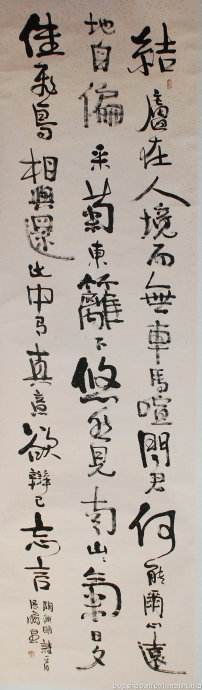 結廬在人境而無車馬喧問君何能爾心遠
地自偏采菊東籬下悠然見南山々氣日夕
佳飛鳥相與還此中有真意欲辯已忘言
陶淵明詩一首